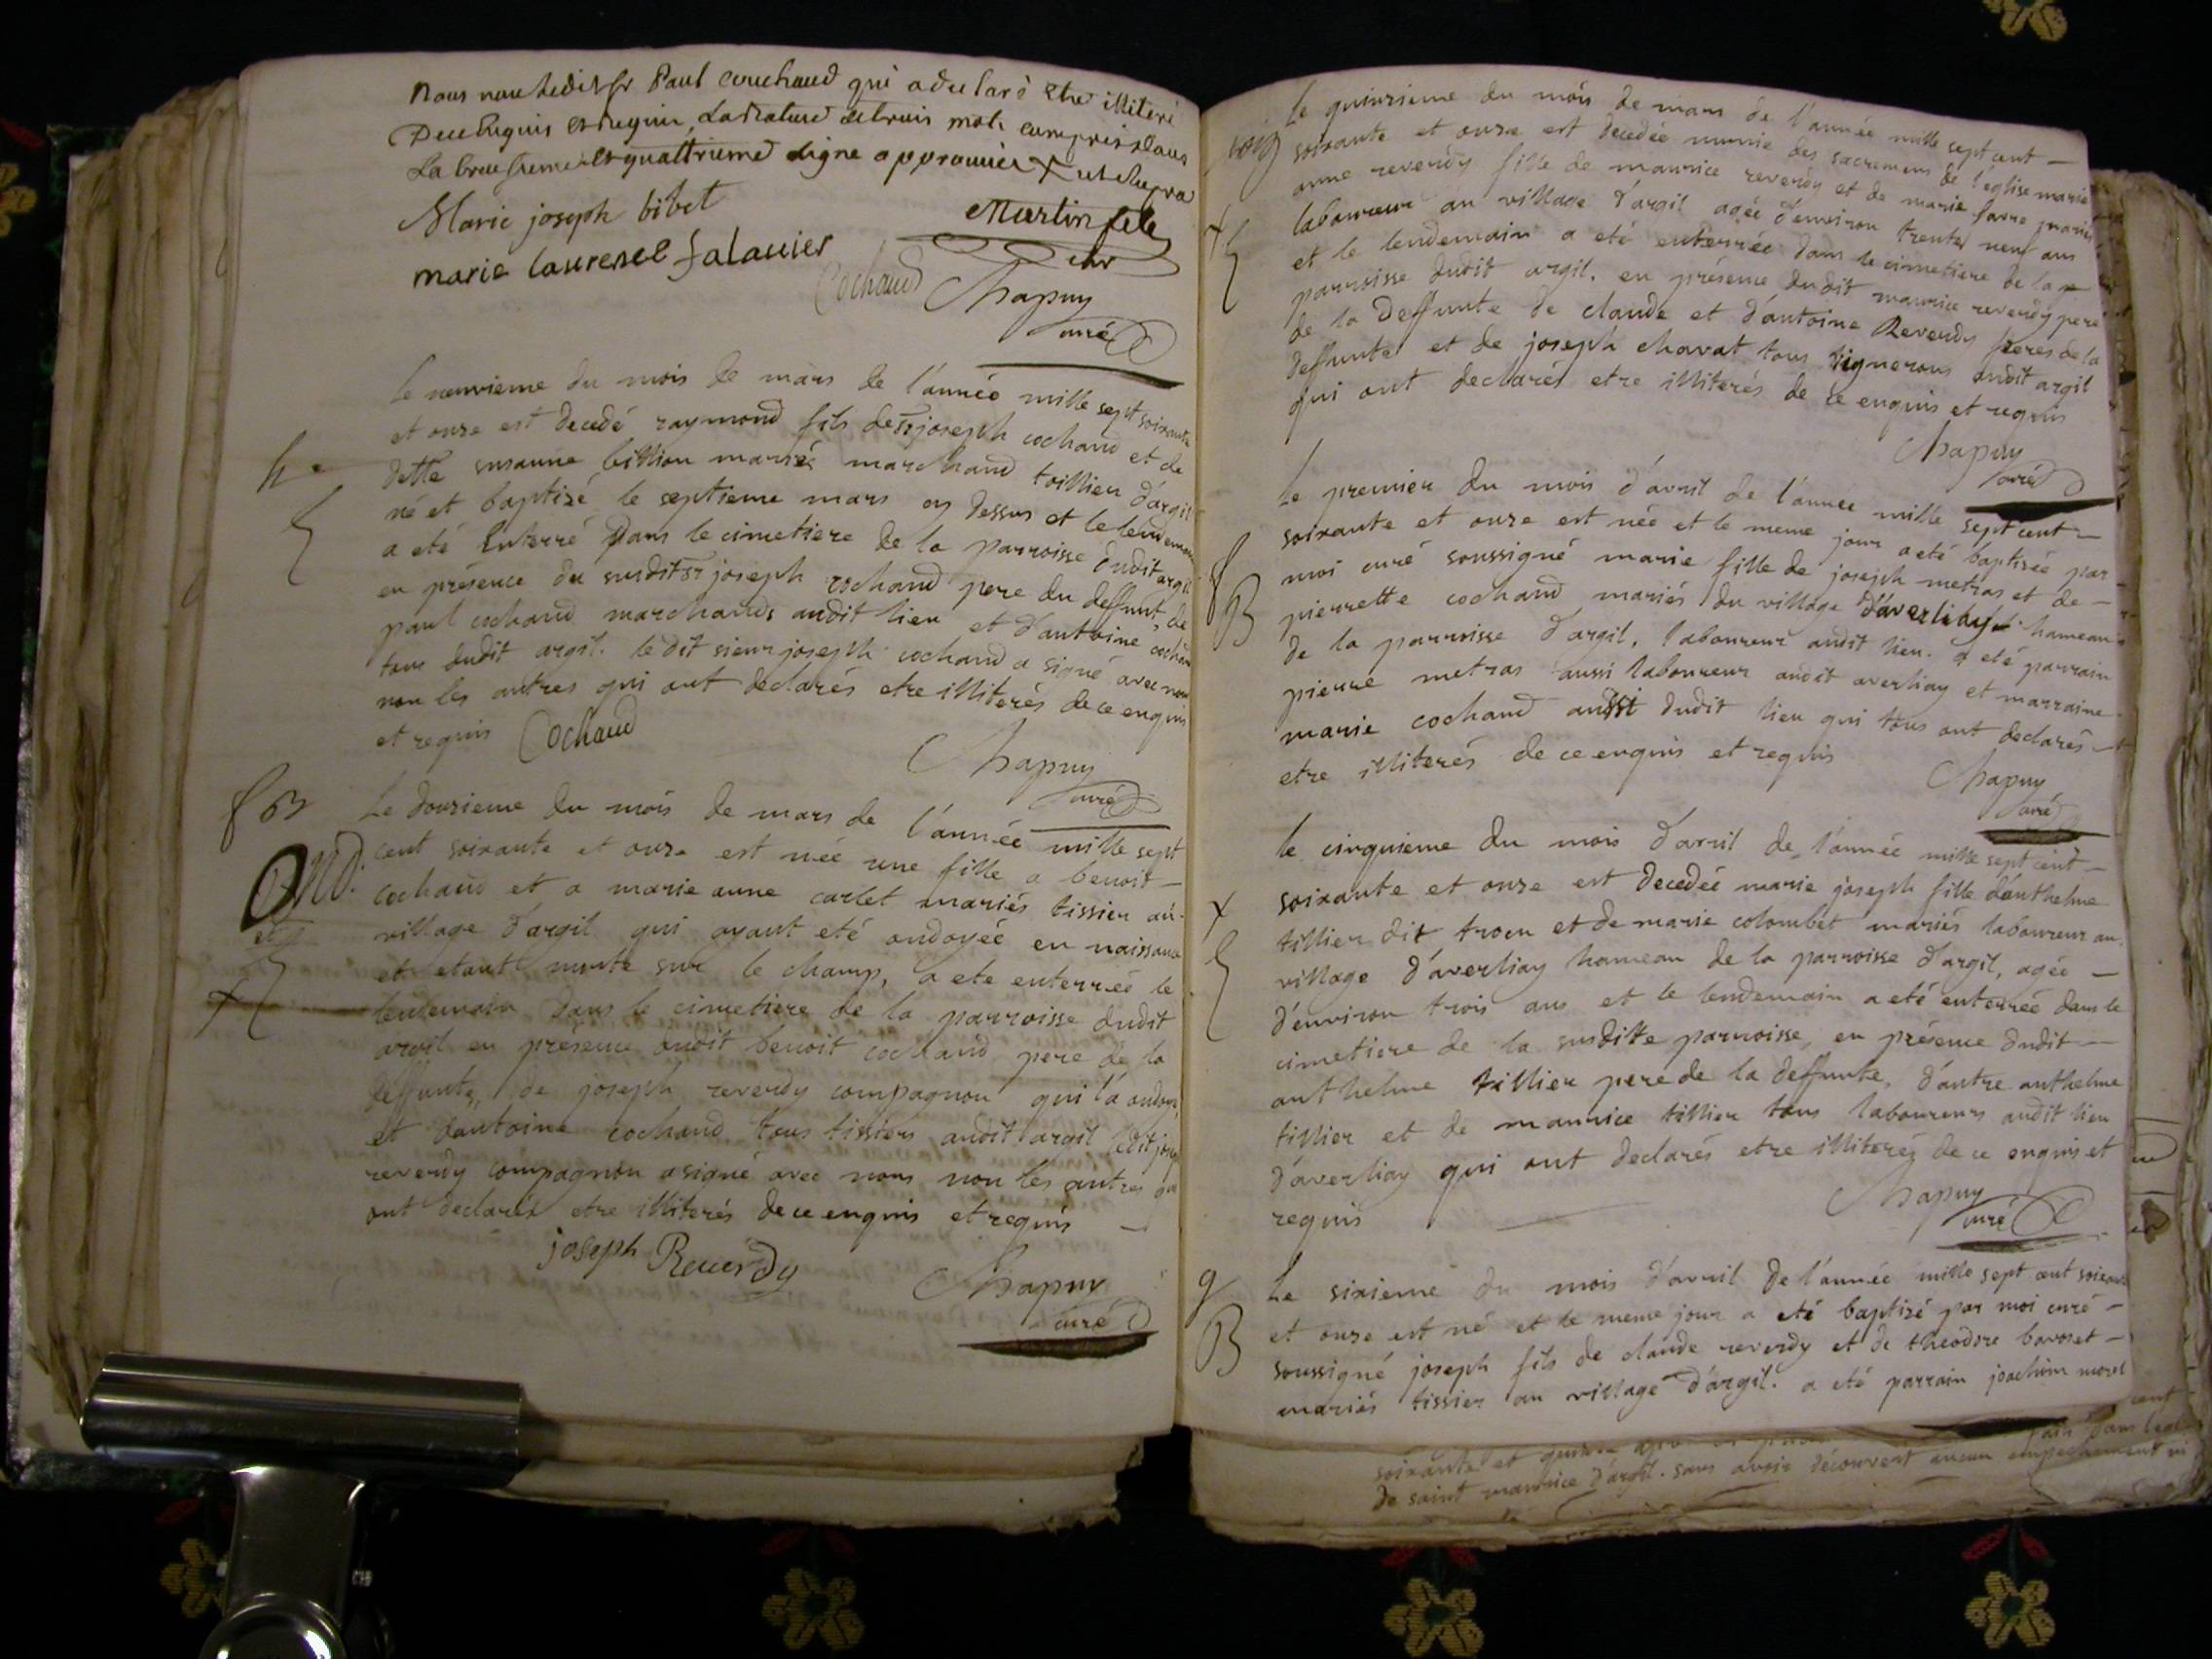 nous non ledit sr Paul couchaud qui a declaré etre illiteré
De ce Enquis et requis, La rature de trois mots compris dans
La et quattrieme ligne approuvée
Marie joseph bibet
Martin
marie laurence falavier
Cochaud
Chapuy
curé
Le neuvieme du mois de mars de l'année mille sept soixante
et onze est decedé raymond fils de sr joseph cochaud et de
dette susanne billion mariés marchand toillier d'argil
né et baptizé le septieme mars cy dessus et le lendemain
a eté Enterré Dans le cimetiere de la parroisse dudit argil
en présence du susdit sr joseph cochaud pere du deffunt, de
paul cochaud marchands audit lieu et d'antoine cochaud
tous dudit argil. ledit sieur joseph cochaud a signé avec nous
non les autres qui ont declarés etre illiterés de ce enquis
et requis
Cochaud
Chapuy
curé
f B
Le douzieme du mois de mars de l'année mille sept
cent soixante et onze est née une fille a benoit
OND.
cochaud et a marie anne carlet mariés tissier au
et
village d'argil qui ayant eté ondoyée en naissance
et etant morte sur le champ, a eté enterrée le
lendemain dans le cimetiere de la parroisse dudit
argil en présence dudit benoit cochaud pere de la
deffunte, de joseph reverdy compagnon qui l'a ondoyé
et d'antoine cochaud tous tissiers audit argil ledit joseph
reverdy compagnon a signé avec nous non les autres qui
ont declarés etre illiterés de ce enquis et requis
joseph Reuerdy
Chapuy
curé
Le quinzieme du mois de mars de l'année mille sept cent
soixante et onze est decedée munie des sacremens de l'eglise marie
anne reverdy fille de maurice reverdy et de marie mariés
laboureur au village d'argil agée d'environ trente neuf ans
et le lendemain a eté enterrée dans le cimetiere de la
parroisse dudit argil. en présence dudit maurice reverdy pere
de la Deffunte de claude et d'antoine Reverdy freres de la
deffunte et de joseph charat tous vignerons audit argil
qui ont declarés etre illiterés de ce enquis et requis
Chapuy
curé
Le premier du mois d'avril de l'annee mille sept cent
soixante et onze est née et le meme jour a eté baptizée par
f
moi curé soussigné marie fille de joseph metras et de
B
pierrette cochaud mariés du village d'averliay hameau
de la parroisse d'argil, laboureur audit lieu. a eté parrain
pierre metras aussi laboureur audit averliay et marraine
marie cochaud aussi dudit lieu qui tous ont declarés
etre illiterés de ce enquis et requis
Chapuy
curé
le cinquieme du mois d'avril de l'année mille sept cent
soixante et onze est decedée marie joseph fille d'anthelme
tillier dit et de marie colombet mariés laboureur au
village d'averliay hameau de la parroisse d'argil, agée
d'environ trois ans et le lendemain a eté enterrée dans le
cimetiere de la susditte parroisse, en présence dudit
anthelme tillier pere de la deffunte, d'autre anthelme
tillier et de maurice tillier tous laboureurs audit lieu
d'averliay qui ont declarés etre illiterés de ce enquis et
requis
Chapuy
curé
g
Le sixieme du mois d'avril de l'année mille sept cent soixante
B
et onze est né et le meme jour a eté baptizé par moi curé
soussigné joseph fils de claude reverdy et de theodore bavoset
mariés tissier au village d'argil. a eté parrain joachim morel
cent
soixante et quinze
de saint maurice d'argil. sans avoir découvert aucun empechement ni